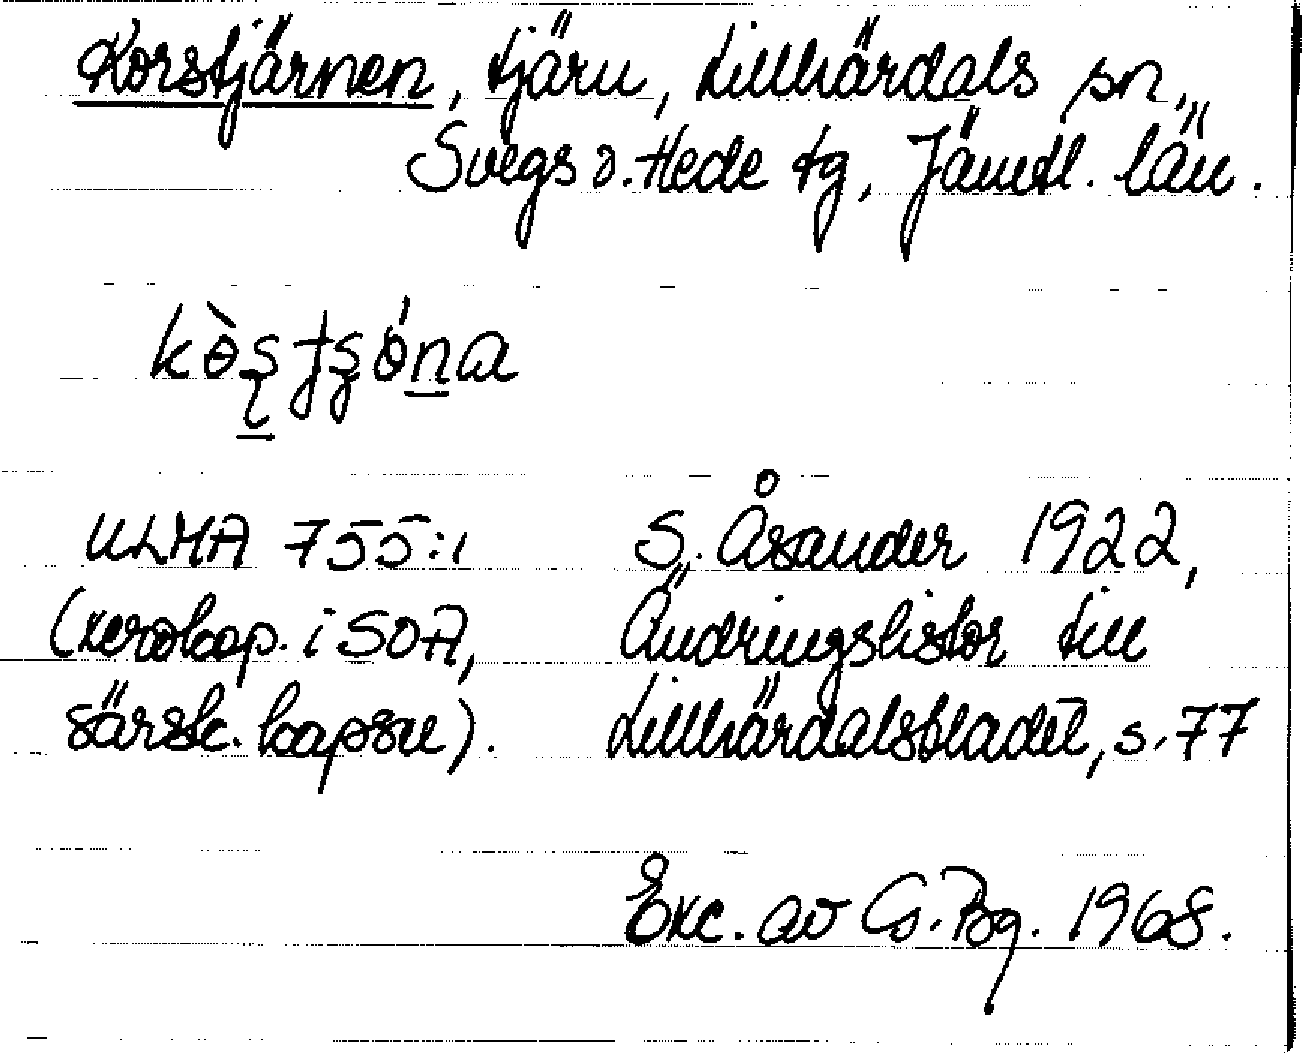 Korstjärnen, tjärn, Lillhärdals sn,
Svegs o. Hede tg, Jämtl. län.
ULMA 755:1
(xerokop. i SOFI,
särsk. kapsel).
S. Åsander 1922,
Ändringslistor till
Lillhärdalsbladet, s. 77
Exc. av G. Bg. 1968.